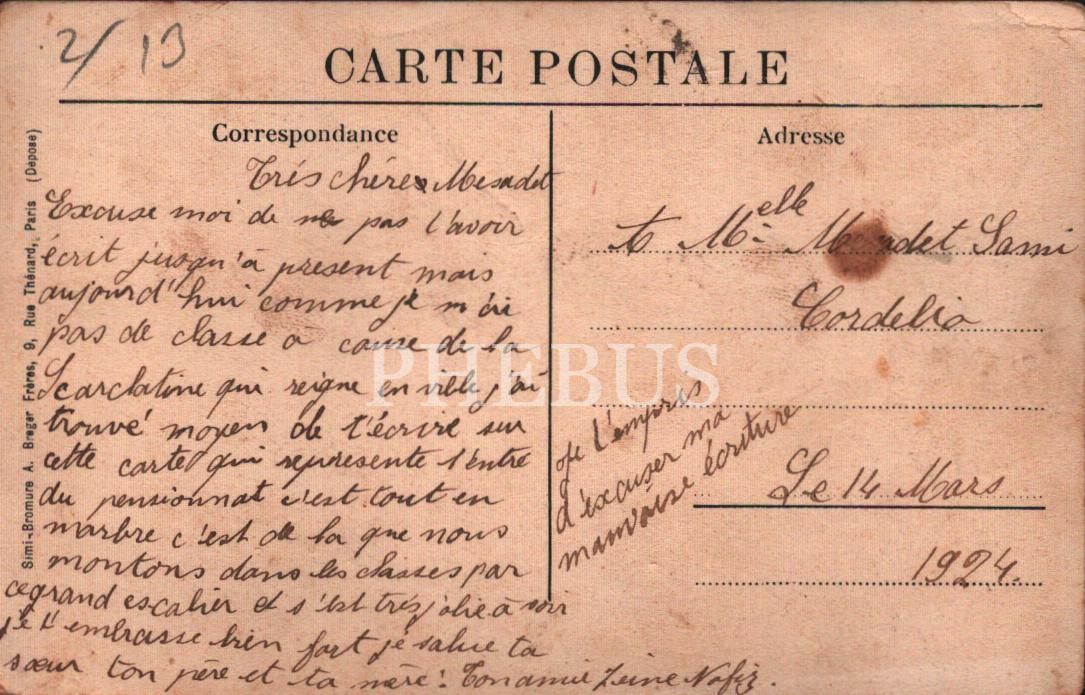 2/13
CARTE POSTALE
Correspondance
Adresse
Simi-Bromure A. Breger Frères, 9, Rue Thénard, Paris (Déposé)
Trés chére Mesadet
Excuse moi de ne pas t'avoir
écrit jusqu'à present mais
aujourd'hui comme je n'ai
pas de classe a cause de la
Scarclatine qui reigne en ville j'ai
trouvé moyen de t'écrire sur
cette carte qui represente l'entré
du pensionnat c'est tout en
marbre c'est de la que nous
montons dans les classes par
ce grand escalier et s'est trés jolie à voir
je t'embrasse bien fort je salue ta
sœur ton père et ta mère. Ton amie Zeine Nafiz.
A Melle Mesadet Sami
Cordelio
Je t'empris
d'excuser ma
mauvaise écriture
Le 14 Mars
1924.
PHEBUS